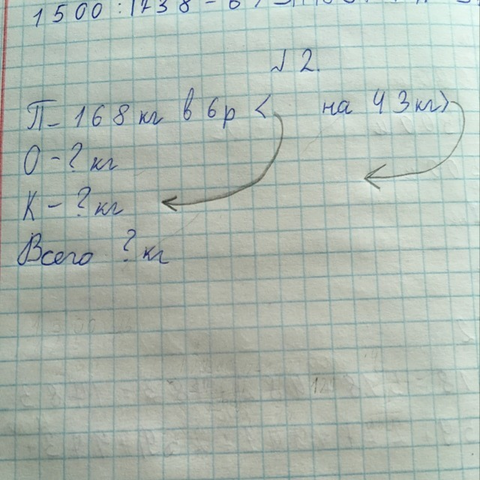 1500:1738-
№2.
П-168кг в 6р < на 43кг>
О-?кг
К-?кг
Всего ?кг